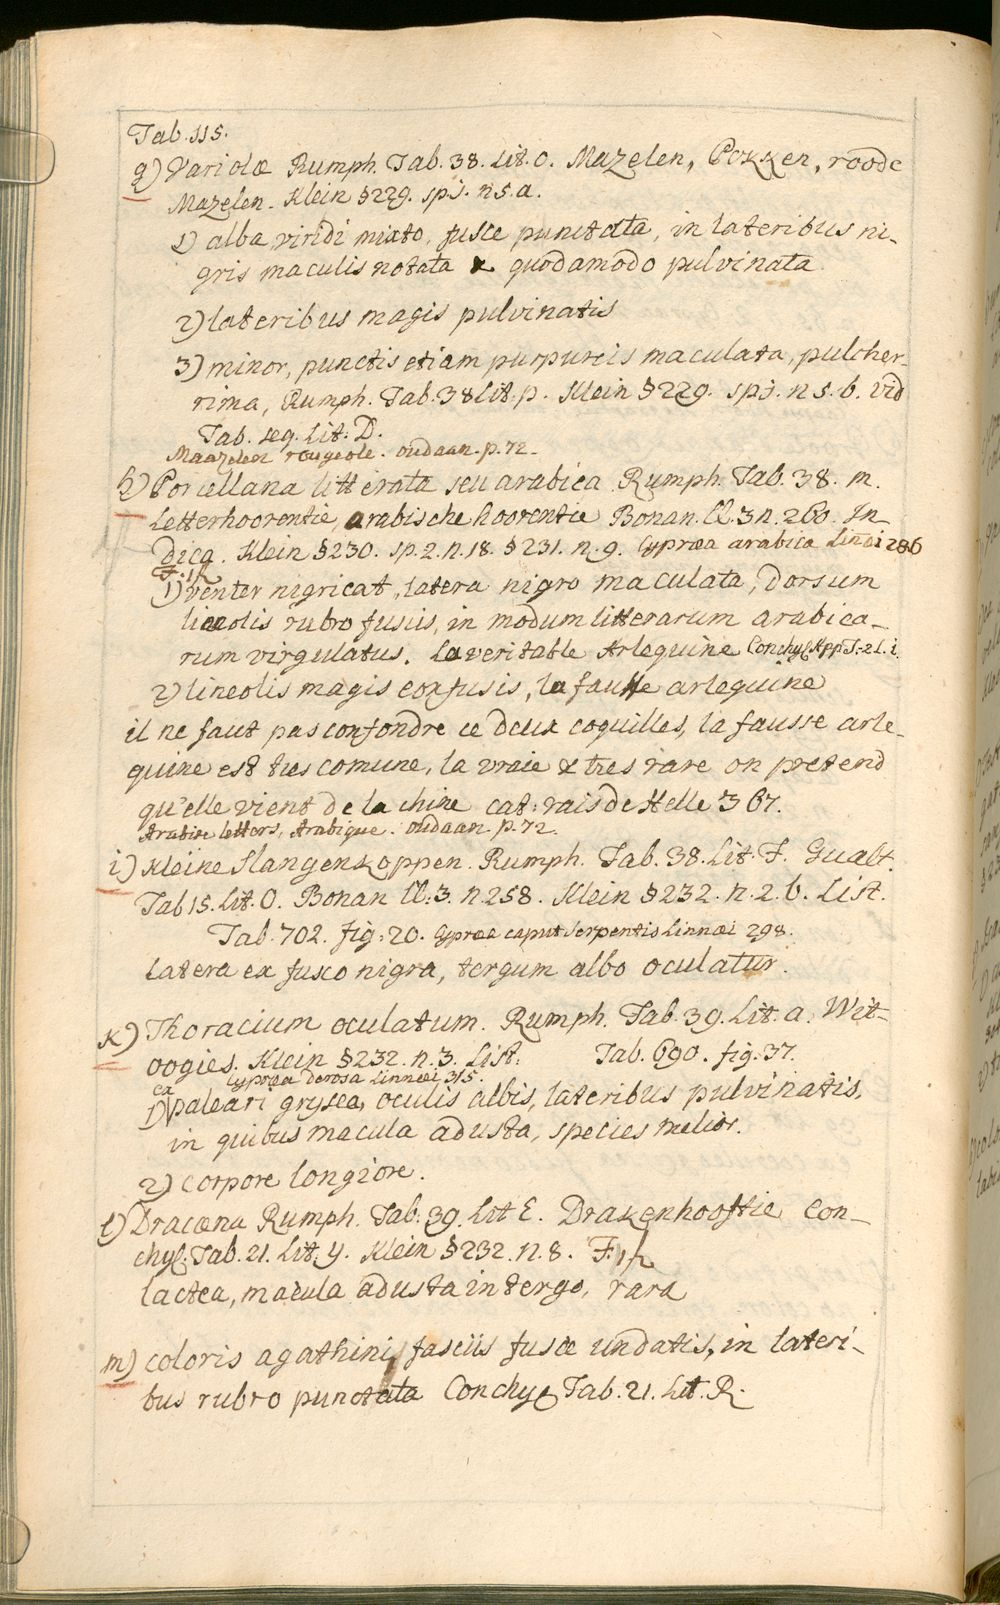 Tab. 115.
g) Variolæ Rumph. Tab. 38. Lit. O. Mazelen, Pokken, roode
Mazelen. Klein §229. sp j. n 5. a.
1) alba viridi mixto, fusce punctata, in lateribus ni-
gris maculis notata & quodamodo pulvinata
2) lateribus magis pulvinatis
3) minor, punctis etiam purpureis maculata, pulcher-
rima, Rumph. Tab. 38 Lit. p. Klein §229. sp j. n 5. b. vid
Tab. seq. Lit: D.
Maazelen rougeole. oudaan. p. 72.
h) Porcellana litterata seu arabica Rumph. Tab. 38. m.
Letterhoorentie, arabische hoorentie Bonan. Cl. 3 n. 260. In-
dica. Klein §230. sp. 2. n. 18. §231. n. 9. Cypræa arabica Linæi 286
1) venter nigricat, latera nigro maculata, dorsum
lineolis rubro fusiis, in modum litterarum arabica-
rum virgulatus. La veritable Arlequine Conchyl App T: 2 L. i.
2) lineolis magis confusis, la fausse arlequine
il ne faut pas confondre ce deux coquilles, la fausse arle-
quine est tres comune, la vraie & tres rare on pretend
qu'elle vient de la chine cat: rais de Helle 367.
Arabise letters, Arabique. oudaan. p. 72.
i) Kleine Slangenkoppen. Rumph. Tab. 38. Lit. F. Gualt.
Tab 15. Lit. O. Bonan Cl: 3. n. 258. Klein §232. n. 2. b. List.
Tab. 702. fig: 20. Cypræa caput Serpentis Linnæi 298.
latera ex fusco nigra, tergum albo oculatur.
K) Thoracium oculatum. Rumph. Tab. 39. Lit. a. Wit-
oogies. Klein §232. n. 3. List. Tab. 690. fig. 37.
Cypræa derosa Linnæi 315.
1) ex paleari grysea, oculis albis, lateribus pulvinatis,
in quibus macula adusta, species melior.
2) corpore longiore.
l) Dracæna Rumph. Tab. 39. Lit E. Drakenhooftie Con-
chyl: Tab. 21. Lit. y. Klein §232. n. 8.
lactea, macula adusta in tergo, rara
m) coloris agathini, fasciis fusce undatis, in lateri-
bus rubro punctata Conchyl Tab. 21. Lit. R.